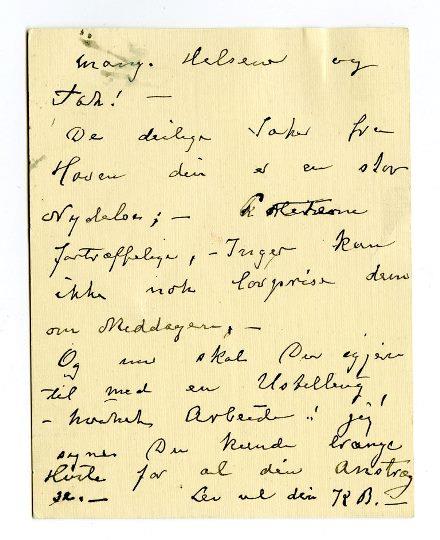 mang. Helsener og
Tak! —
De deilige Saker fra
Haven din er en stor
Nydelse; —
fortræffelige, – Inger kan
ikke nok lovprise dem
om Middagen, —
Og nu skal Du igjen
til med en Ustelling
– hvilket Arbeide! jeg
synes Du kunde trænge
Hvile for al din Anstræng
se. — Lev vel din K B. —